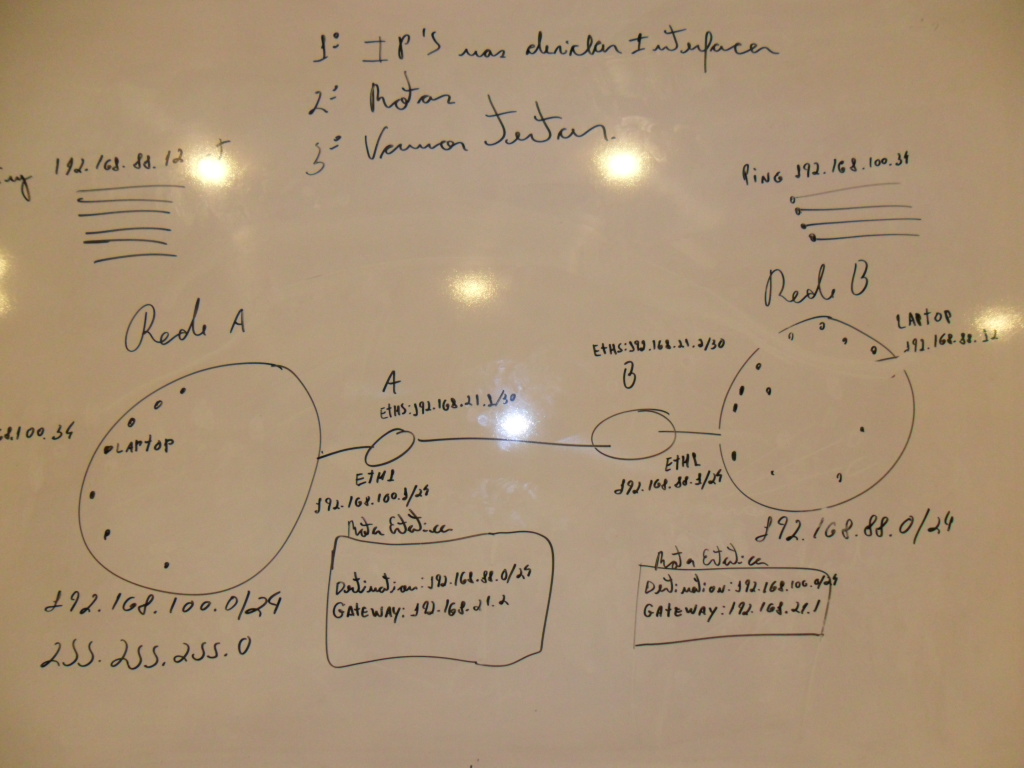 1º IP'S nas devidas Interfaces
2º Rotas
3º Vamos testar.
192.168.88.12
PING 192.168.100.34
Rede A
Rede B
LAPTOP
192.168.88.12
ETH5:192.168.21.2/30
B
A
ETH5:192.168.21.1/30
8.100.34
LAPTOP
ETH1
192.168.100.1/24
ETH1
192.168.88.1/24
192.168.88.0/24
Rota Estática
Destination:192.168.88.0/24
GATEWAY:192.168.21.2
Rota Estática
Destination:192.168.100.0/24
GATEWAY:192.168.21.1
192.168.100.0/24
255.255.255.0